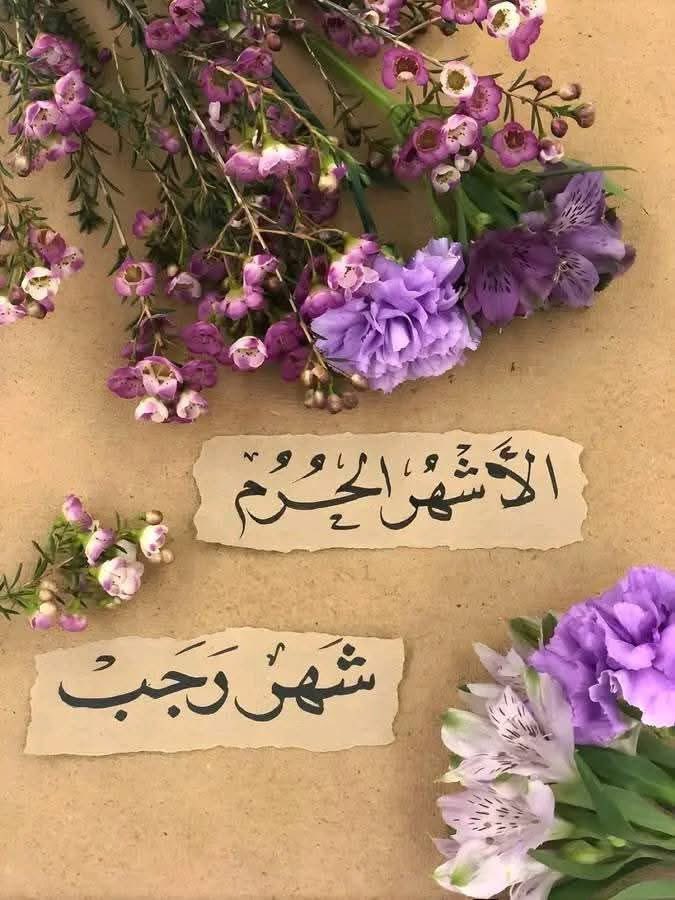 الأَشْهُر الحُرُم
شَهر رَجَب